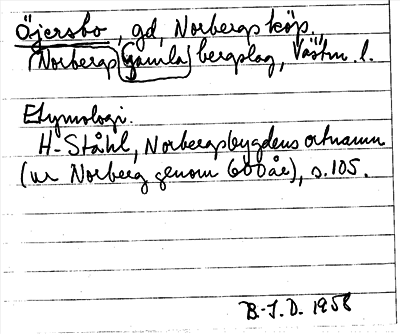 Öjersbo, gd, Norbergs köp.
Norbergs gamla bergslag, Västm. l.
Etymologi.
H. Ståhl, Norbergsbygdens ortnamn
(ur Norberg genom 600 år), s. 105.
B.-I. D. 1958